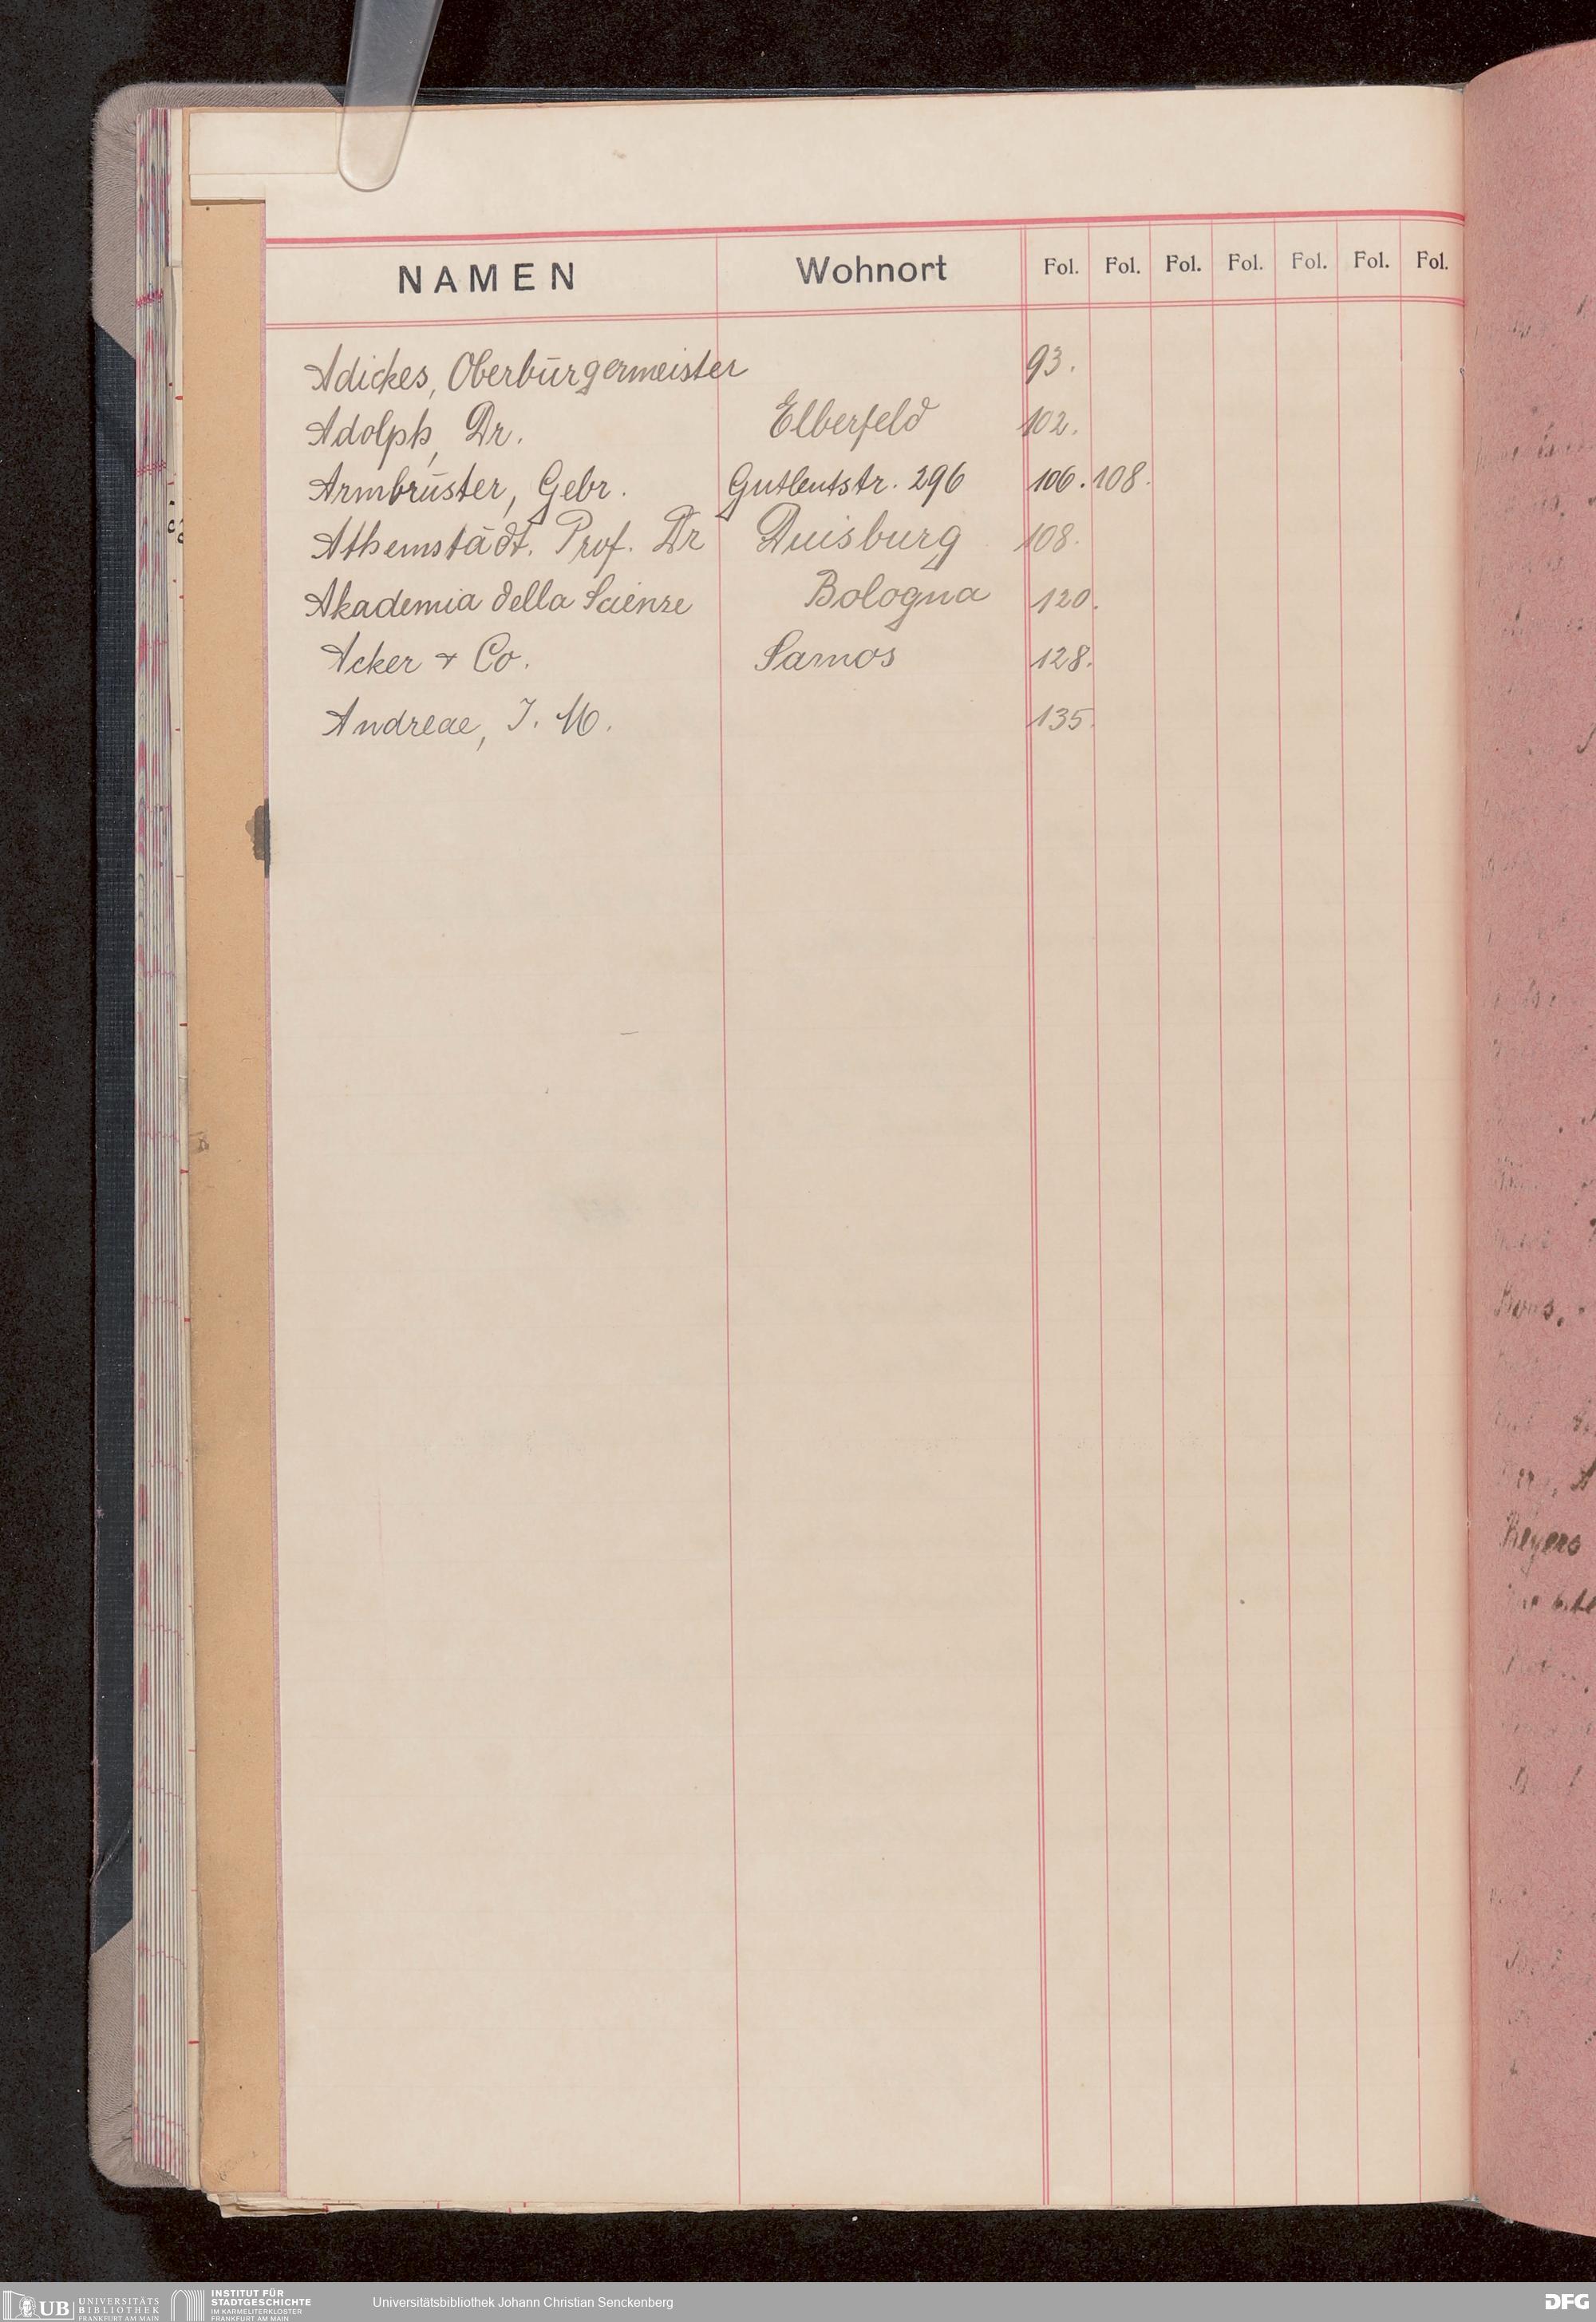 NAMEN Wohnort Fol. Fol. Fol. Fol. Fol. Fol. Fol.
Adickes, Oberbürgermeister 93.
Adolph, Dr. Elberfeld 102.
Armbrüster, Gebr. Gutleutstr. 296 106. 108.
Athenstädt. Prof. Dr Duisburg 108.
Akademia della Scienze Bologna 120.
Acker & Co. Samos 128.
Andreae, J. M. 135.
Beyers
UB UNIVERSITÄTS
BIBLIOTHEK
FRANKFURT AM MAIN
INSTITUT FÜR
STADTGESCHICHTE
IM KARMELITERKLOSTER
FRANKFURT AM MAIN
Universitätsbibliothek Johann Christian Senckenberg
DFG